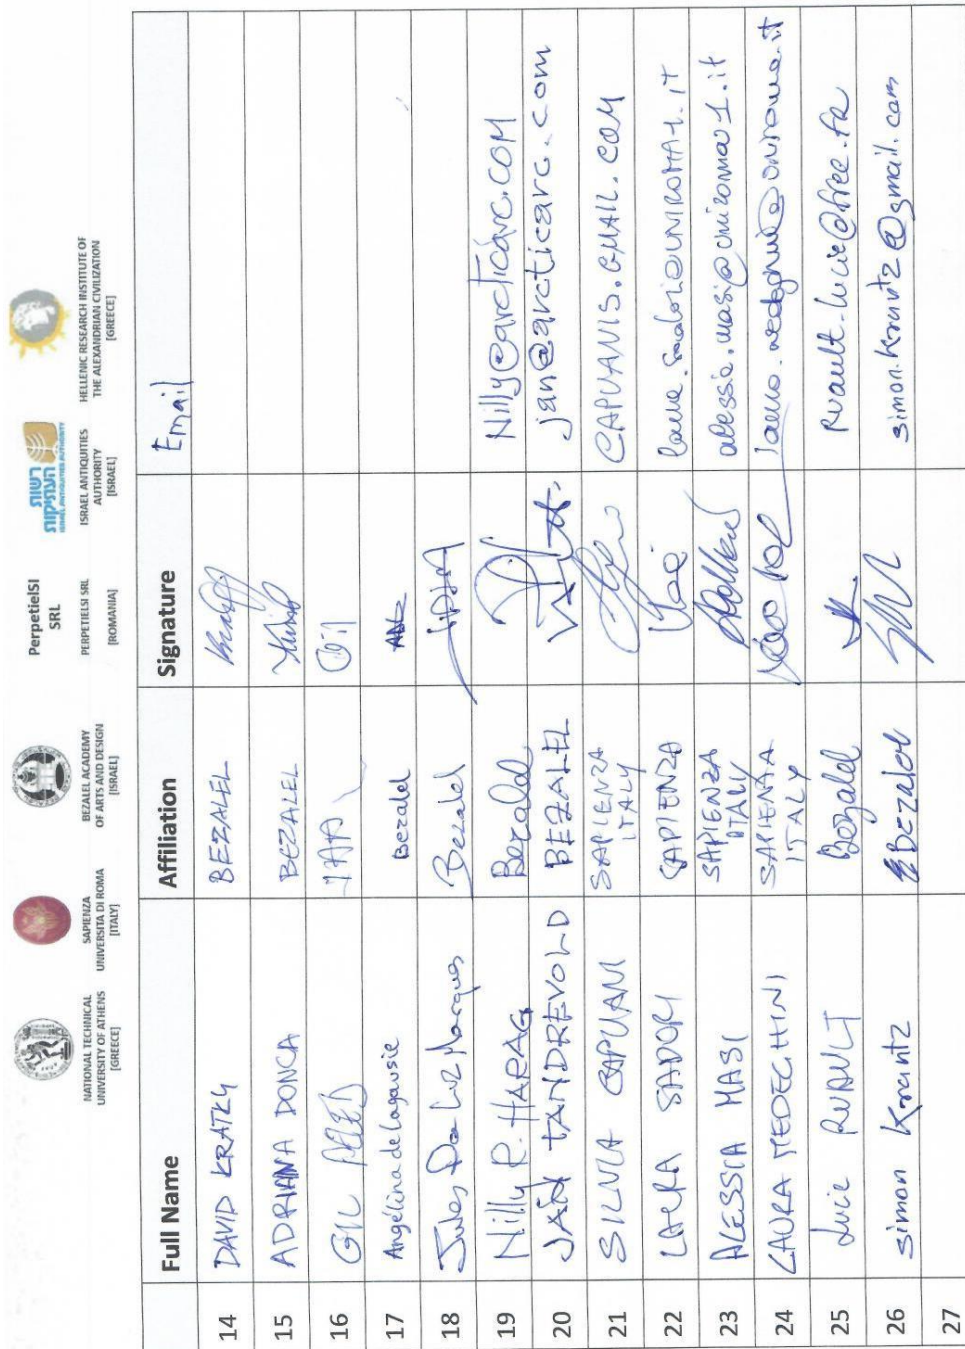 NATIONAL TECHNICAL
UNIVERSITY OF ATHENS
[GREECE]
SAPIENZA
UNIVERSITA DI ROMA
[ITALY]
BEZALEL ACADEMY
OF ARTS AND DESIGN
[ISRAEL]
PerpetielSI
SRL
PERPETIELSI SRL
[ROMANIA]
רשות
העתיקות
ISRAEL ANTIQUITIES AUTHORITY
ISRAEL ANTIQUITIES
AUTHORITY
[ISRAEL]
HELLENIC RESEARCH INSTITUTE OF
THE ALEXANDRIAN CIVILIZATION
[GREECE]
Full Name Affiliation Signature Email
14 DAVID KRATKY BEZALEL
15 ADRIANA DONCA BEZALEL
16 GIL PELED Gil
17 Angelina de Lagausie Bezalel
18 Jules Da Luz Marques Bezalel
19 Nilly R. HARAG Bezalel Nilly@arcticarc.COM
20 JAN TANDREVOLD BEZALEL jan@arcticarc.com
21 SILVIA CAPUANI SAPIENZA ITALY CAPUANIS.GMAIL.COM
22 LAURA SADORI SAPIENZA laura.sadori@UNIROMA1.it
23 ALESSIA MASI SAPIENZA ITALY alessia.masi@uniroma1.it
24 LAURA MEDEGHINI SAPIENZA ITALY
25 Lucie RUAULT Bezalel ruault.lucie@free.fr
26 simon Krantz Bezalel simon.krantz@gmail.com
27